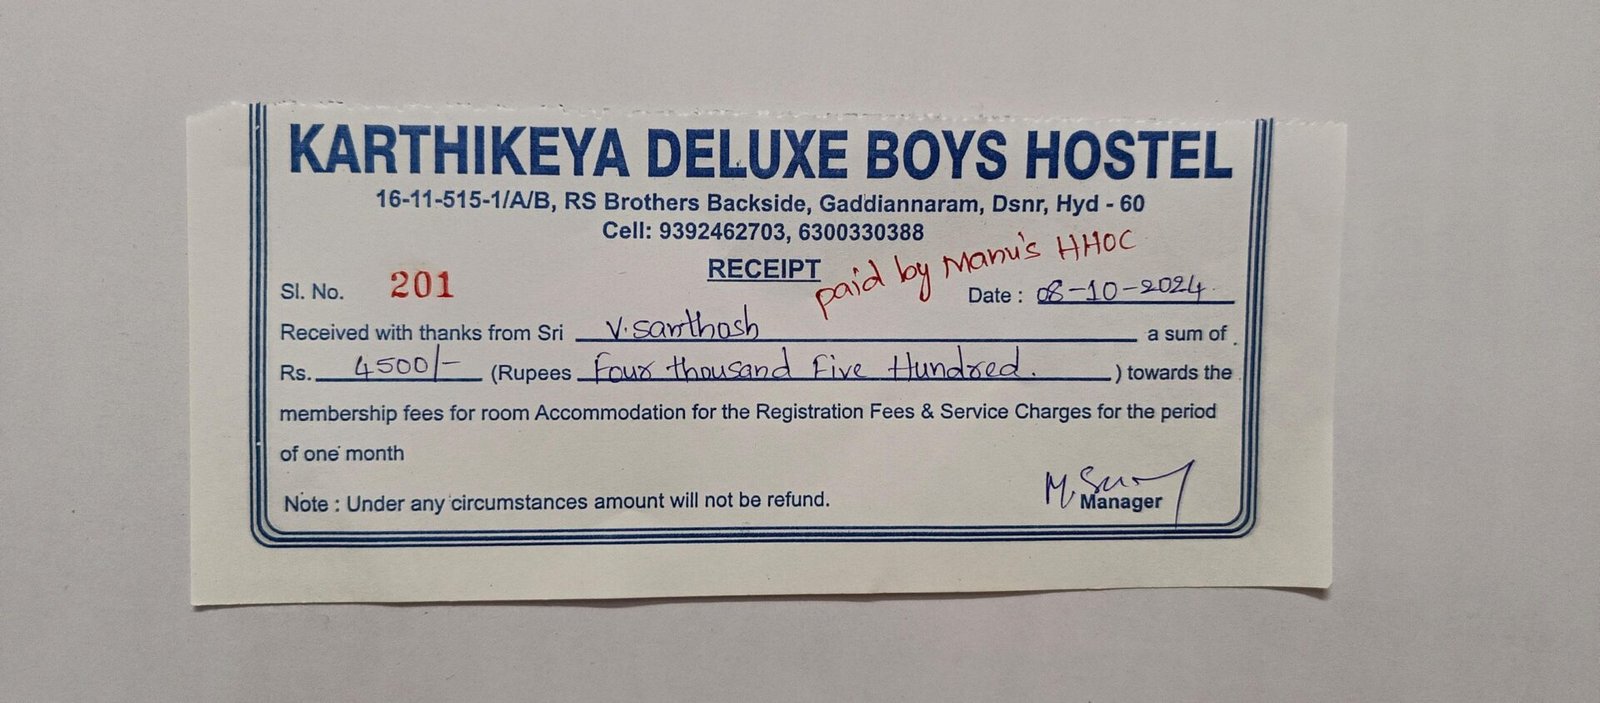 KARTHIKEYA DELUXE BOYS HOSTEL
16-11-515-1/A/B, RS Brothers Backside, Gaddiannaram, Dsnr, Hyd - 60
Cell: 9392462703, 6300330388
RECEIPT
paid by Manu's HHOC
Sl. No. 201
Date : 08-10-2024.
Received with thanks from Sri V. Santhosh a sum of
Rs. 4500/- (Rupees Four thousand Five Hundred. ) towards the
membership fees for room Accommodation for the Registration Fees & Service Charges for the period
of one month
Note : Under any circumstances amount will not be refund.
Manager